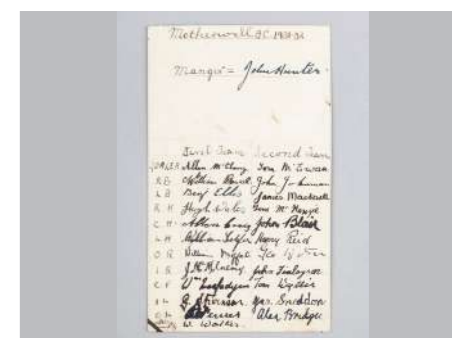 Motherwell F.C. 1931-32
Mangr = John Hunter
First Team Second Team
Allan McClory Tom McEwan
R B William John
L B Benj Ellis James Mackerell
R H Hugh Wales Tom McKenzie
C H Allan Craig John Blair
L H William Telfer Harry Reid
O R William Moffat
I R J McMenemy John Finlayson
C F Wm McFadyen Tom Wyllie
I L G. Stevenson Jas. Sneddon
O L Ferrier Alan Bridges
W. Walker